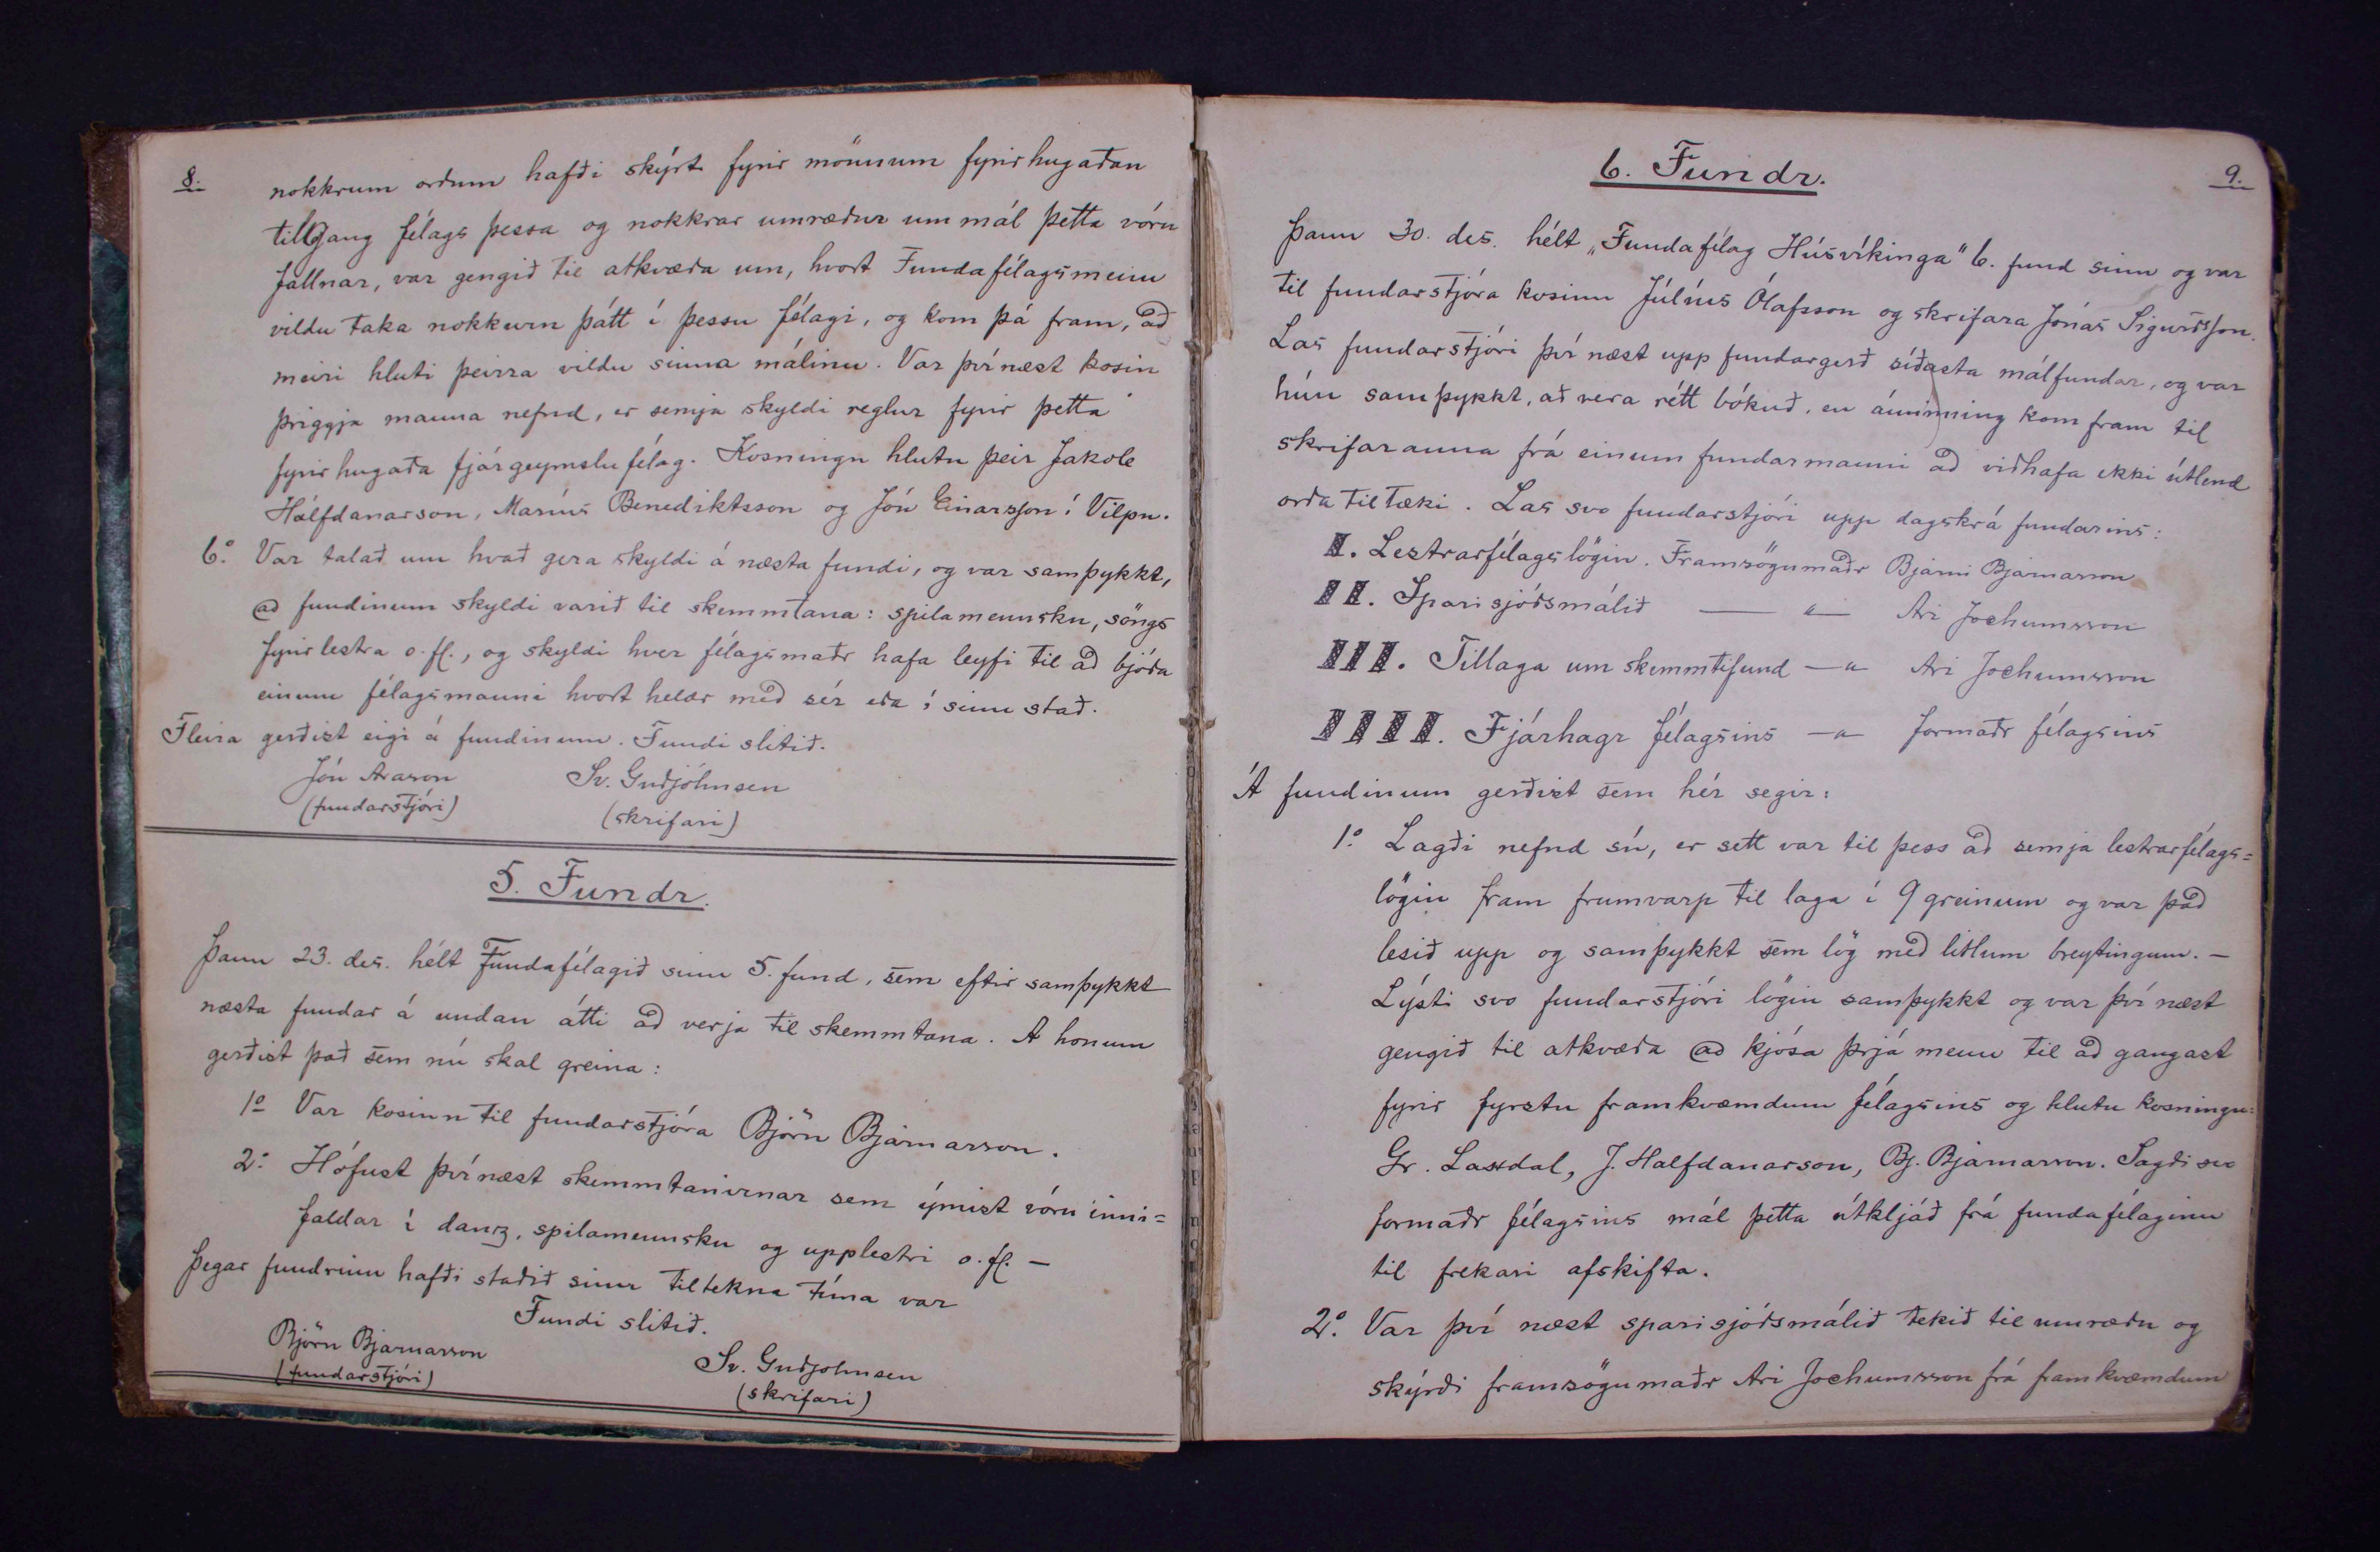 8.
nokkrum orðum hafði skýrt fyrir mönnum fyrirhugaðan
tilgang félags þessa og nokkrar umræður um mál þetta vóru
fallnar, var gengið til atkvæða um, hvort Fundafélagsmenn
vildu taka nokkurn þátt í þessu félagi, og kom þá fram, að
meiri hluti þeirra vildu sinna málinu. Var því næst kosin
þriggja manna nefnd, er semja skyldi reglur fyrir þetta
fyrirhugaða fjárgeymslufélag. Kosningu hlutu þeir Jakob
Hálfdanarson, Maríus Benediktsson og Jón Einarsson í Vilpu.
6.º Var talað um hvað gera skyldi á næsta fundi, og var samþykkt,
að fundinum skyldi varið til skemmtana: spilamennsku, söngs
fyrirlestra o.fl., og skyldi hver félagsmaðr hafa leyfi til að bjóða
einum félagsmanni hvort heldr með sér eða í sinn stað.
Fleira gerðist eigi á fundinum. Fundi slitið.
Jón Arason Sv. Guðjóhnsen
(fundarstjóri) (skrifari)
5. Fundr.
Þann 23. des. hélt Fundafélagið sinn 5. fund, sem eftir samþykkt
næsta fundar á undan átti að verja til skemmtana. Á honum
gerðist það sem nú skal greina:
1º Var kosinn til fundarstjóra Björn Bjarnarson.
2.º Hófust því næst skemmtanirnar sem ýmist vóru inni=
faldar í danz, spilamennsku og upplestri o.fl. –
Þegar fundrinn hafði staðið sinn tiltekna tíma var
Fundi slitið.
Björn Bjarnarson Sv. Guðjohnsen
(fundarstjóri) (skrifari)
6. Fundr.
9.
Þann 30. des. hélt „Fundafélag Húsvíkinga" 6. fund sinn og var
til fundarstjóra kosinn Júlíus Ólafsson og skrifara Jónas Sigurðsson.
Las fundarstjóri því næst upp fundargerð síðasta málfundar, og var
hún samþykkt, að vera rétt bókuð, en áminning kom fram til
skrifaranna frá einum fundarmanni að viðhafa ekki útlend
orðatiltæki. Las svo fundarstjóri upp dagskrá fundarins:
I. Lestrarfélagslögin. Framsögumaðr Bjarni Bjarnarson
II. Sparisjóðsmálið — „ — Ari Jochumsson
III. Tillaga um skemmtifund — „ — Ari Jochumsson
IIII. Fjárhagr félagsins — „ — formaðr félagsins
Á fundinum gerðist sem hér segir:
1.º Lagði nefnd sú, er sett var til þess að semja lestrarfélags=
lögin fram frumvarp til laga í 9 greinum og var það
lesið upp og samþykkt sem lög með litlum breytingum. –
Lýsti svo fundarstjóri lögin samþykkt og var því næst
gengið til atkvæða að kjósa þrjá menn til að gangast
fyrir fyrstu framkvæmdum félagsins og hlutu kosningu:
Gr. Laxdal, J. Halfdanarson, Bj. Bjarnarson. Sagði svo
formaðr félagsins mál þetta útkljáð frá fundafélaginu
til frekari afskifta.
2.º Var því næst sparisjóðsmálið tekið til umræðu og
skýrði framsögumaðr Ari Jochumsson frá framkvæmdum